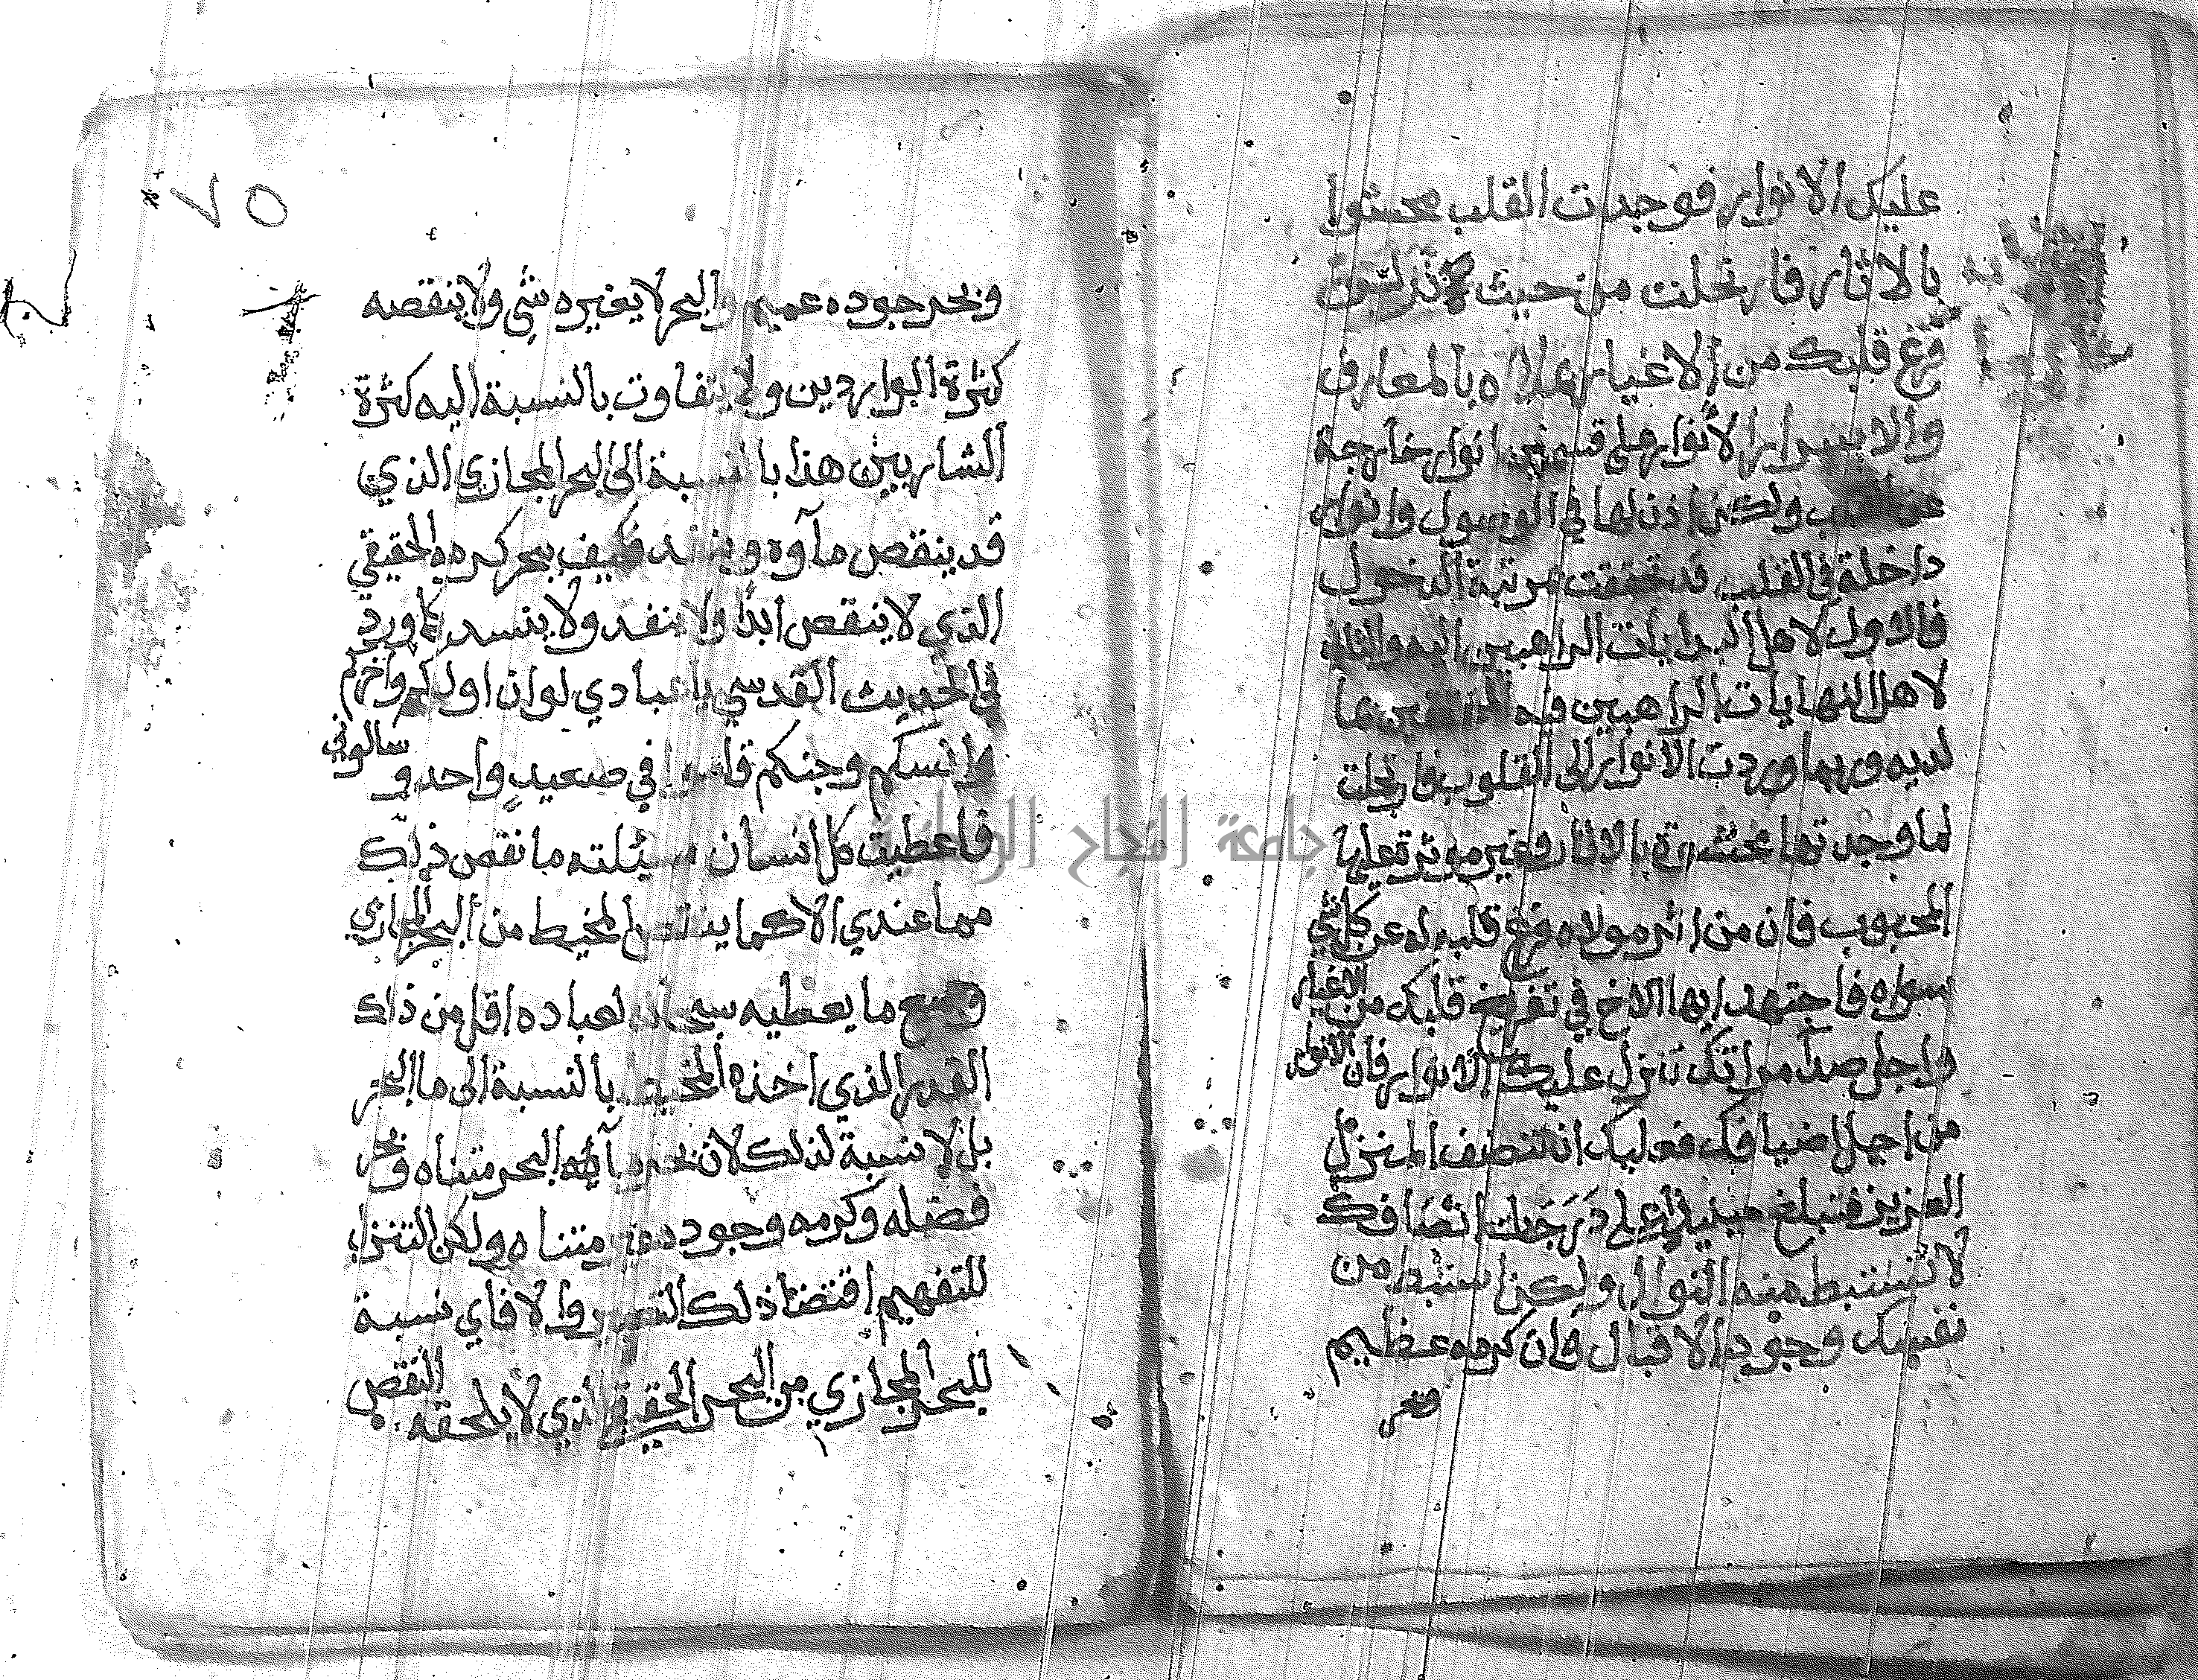 عليك الانوار فوجدت القلب محشوا
بالاثار فارتحلت من حيث نزلت
فرغ قلبك من الاغيار يملاه بالمعارف
والاسرار الانوار على قسمين انوار خارجة
عن القلب ولكن اذن لها في الوصول وانوار
داخلة في القلب قد تحققت مرتبة الدخول
فالاول لاهل البدايات الراهبين اليه والثاني
لاهل النهايات الراهبين فيه بما
لديه وربما وردت الانوار الى القلوب فارتحلت
لما وجدتها محشوة بالاثار وغير موثرة عليها
المحبوب فان من اثر مولاه فرغ قلبه له عن كل شي
سواه فاجتهد ايها الاخ في تفريغ قلبك من الاغيار
واجل صدا مراتك تنزل عليك الانوار فان الانوار
من اجل اضيافك فعليك ان تنضف المنزل
العزيز فتبلغ حينيذ اعلى درجات
لا تستبط منه النوال ولكن استبط من
نفسك وجود الاقبال فان كرمه عظيم
وبحر
٧٥
وبحر جوده عميم والبحر لا يغيره شي ولا ينقصه
كثرة الواردين ولا يتفاوت بالنسبة اليه كثرة
الشاربين هذا بالنسبة الى البحر المجازي الذي
قد ينقص ماوه وينفد فكيف ببحر كرمه الحقيقي
الذي لا ينقص ابدا ولا ينفد ولا كما ورد
في الحديث القدسي يا عبادي لو ان اولكم واخركم
وانسكم وجنكم قاموا في صعيد واحد و سالوني
فاعطيت كل انسان مسيلته ما نقص ذلك
مما عندي الا كما ينقص المخيط من البحر المجازي
وجميع ما يعطيه سبحانه لعباده اقل من ذلك
القدر الذي اخذه المخيط بالنسبة الى ما البحر
بل لا نسبة لذلك لان البحر متناه وبحر
فضله وكرمه وجوده غير متناه ولكن التنزل
للتفهيم اقتضا ذلك التعبير والا فاي نسبة
للبحر المجازي من البحر الحقيقي الذي لا يلحقه النقص
جامعة النجاح الوطنية